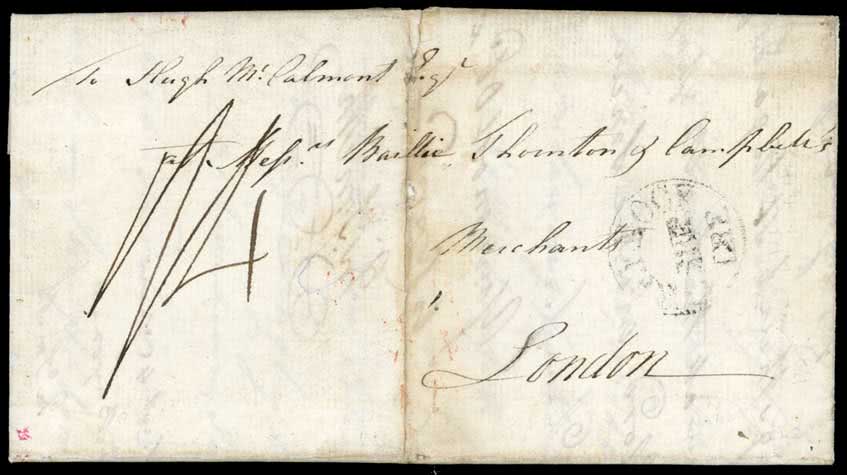 To Hugh Mc. Calmont Esqr
at Messrs Baillie Thornton & Campbell's
Merchants
London